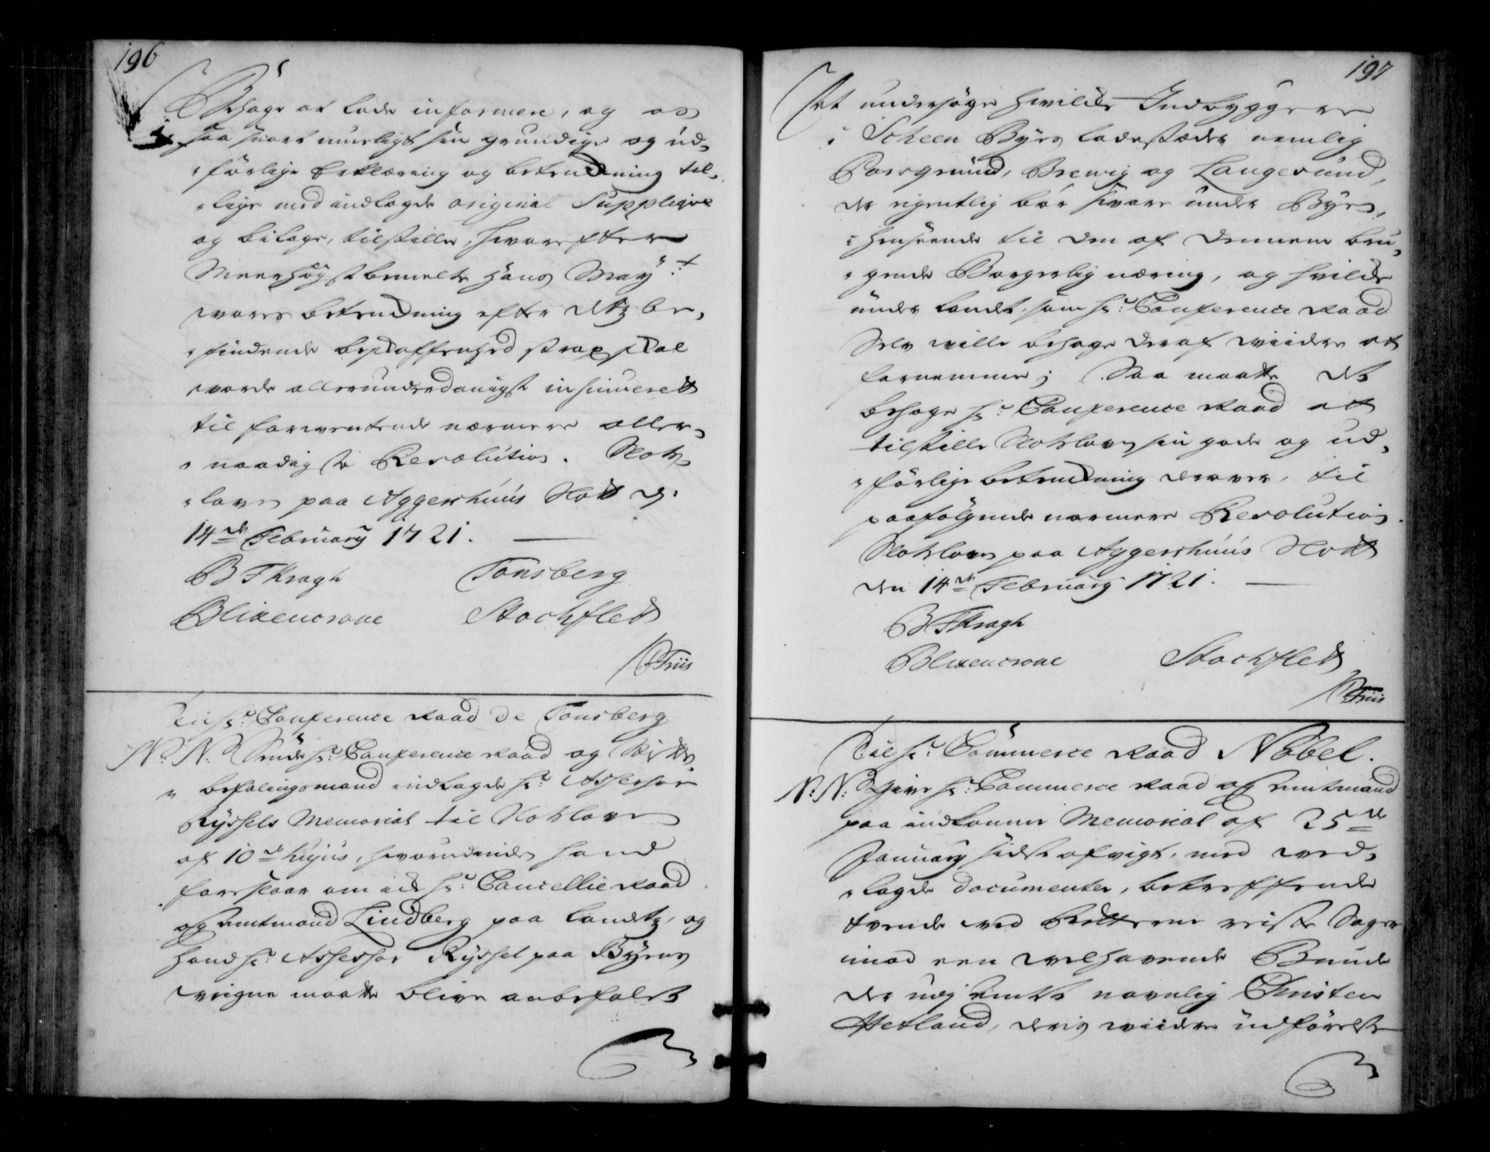 196
Behage at lade informere, og os
saa snart mueligt sin grundige og ud-
førlige Erklæring og betenckning til-
lige med indlagde original Supplique
og bilage, tilstille, hvorefter
Meerhøgstbemelte Hans May:t
vores betenckning efter
findende beskaffenhed skal
vorde allerunderdanigst insinueret
til forventende nærmere aller-
naadigste Resolution. Slots-
loven paa Aggershuus Slott d:
14de February 1721.
B F Kragh Tonsberg
Blixencrone Stochfleth
Friis
Til Hr: Conference Raad de Tonsberg
N: N: Sende Hr: Conference Raad og Stifts-
befalingsmand indlagde Hr: Assessor
Ryssels Memorial til Slotsloven
af 10de hujus, hvorudinde hand
forestaar om at Hr: Cancellie Raad
og Amtmand Lindberg paa Landet, og
hand Hr: Assessor Ryssel paa Byens
veigne maatte blive anbefalet
197
at undersøge hvilcke Indbyggere
i Scheen Byes ladestæder nemlig
Porsgrund, Brewig og Langesund,
der egentlig bør svare under Byen,
i henseende til den af dennem bru-
gende Borgerlig næring, og hvilcke
under Landet, som Hr: Conference Raad
Selv wille behage deraf wiidere at
fornemme; Saa maatte det
behage Hr: Conference Raad at
tilstille Slotsloven sin gode og ud-
førlige betenckning derover, til
paafølgende nærmere Resolution.
Slotsloven paa Aggershuus Slott
den 14de February 1721.
B F Kragh
Blixencrone Stochfleth
Friis
Til Hr: Commerce Raad Nobel.
N: N: Hr: Commerce Raad og Amtmand
paa indkomne Memorial af 25de
January sidst afvigt, med ved-
lagde documenter, betreffende
tvende ved Retterne reiste Sager
imod een velhavende Bunde
der udj Amtet navnlig Christen
Hetland, dens wiidere udførelse